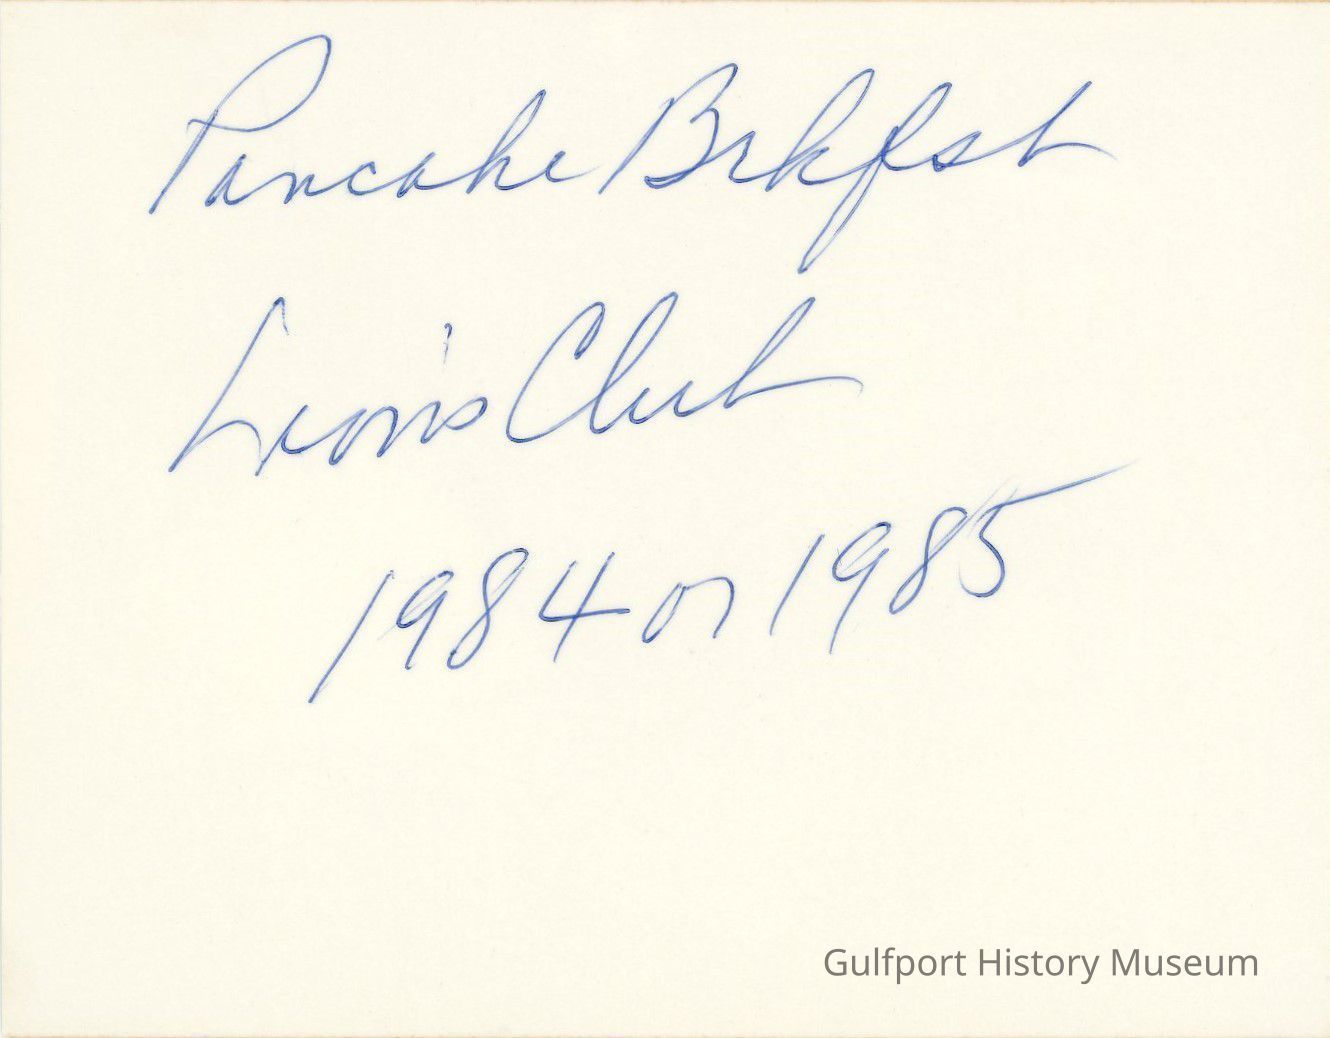 Pancake Brkfst
Lion's Club
1984 or 1985
Gulfport History Museum